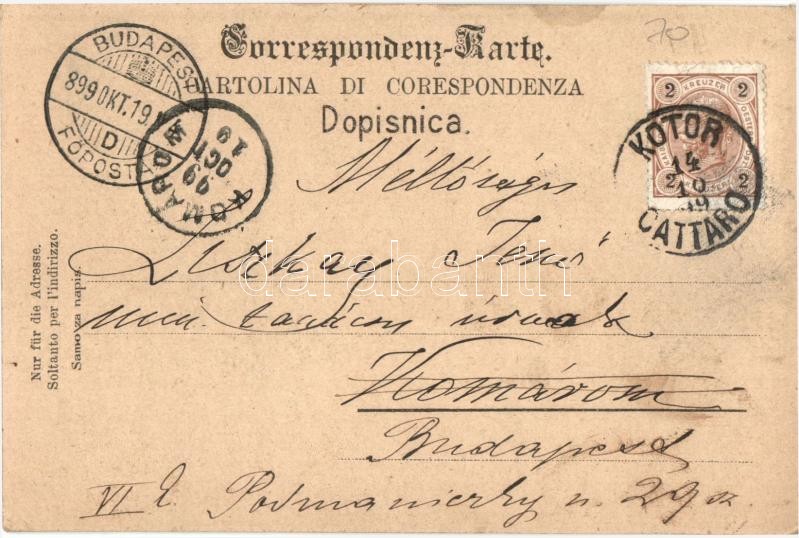 70
Correspondenz-Karte.
CARTOLINA DI CORESPONDENZA
Dopisnica.
BUDAPEST
899 OKT. 19
D
FŐPOSTA
KOMÁROM
99
OCT
19
2 KREUZER 2
2 2
KOTOR
14
10
99
CATTARO
Méltóságos
Jenő
min. tanácsos úrnak
Komárom
Budapest
VI
Podmaniczky u. 29 sz
Nur für die Adresse.
Soltanto per l'indirizzo.
Samo za napis.
darabanth